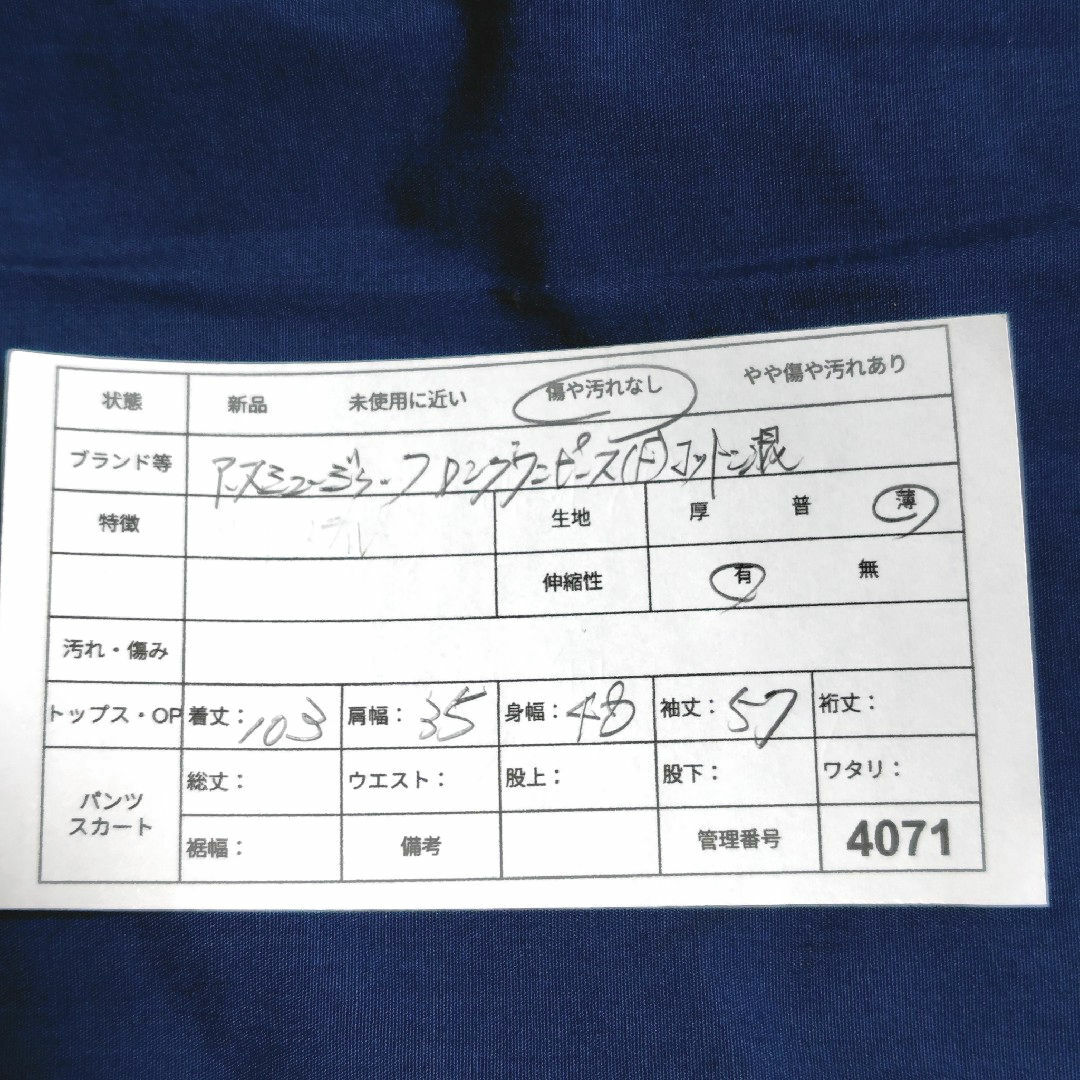 状態 新品 未使用に近い 傷や汚れなし やや傷や汚れあり
ブランド等 アースミュージック ロングワンピース(F)コットン混
特徴 生地 厚 普 薄
伸縮性 有 無
汚れ・傷み
トップス・OP 着丈：103 肩幅：35 身幅：48 袖丈：57 裄丈：
パンツ スカート
総丈： ウエスト： 股上： 股下： ワタリ：
裾幅： 備考 管理番号 4071